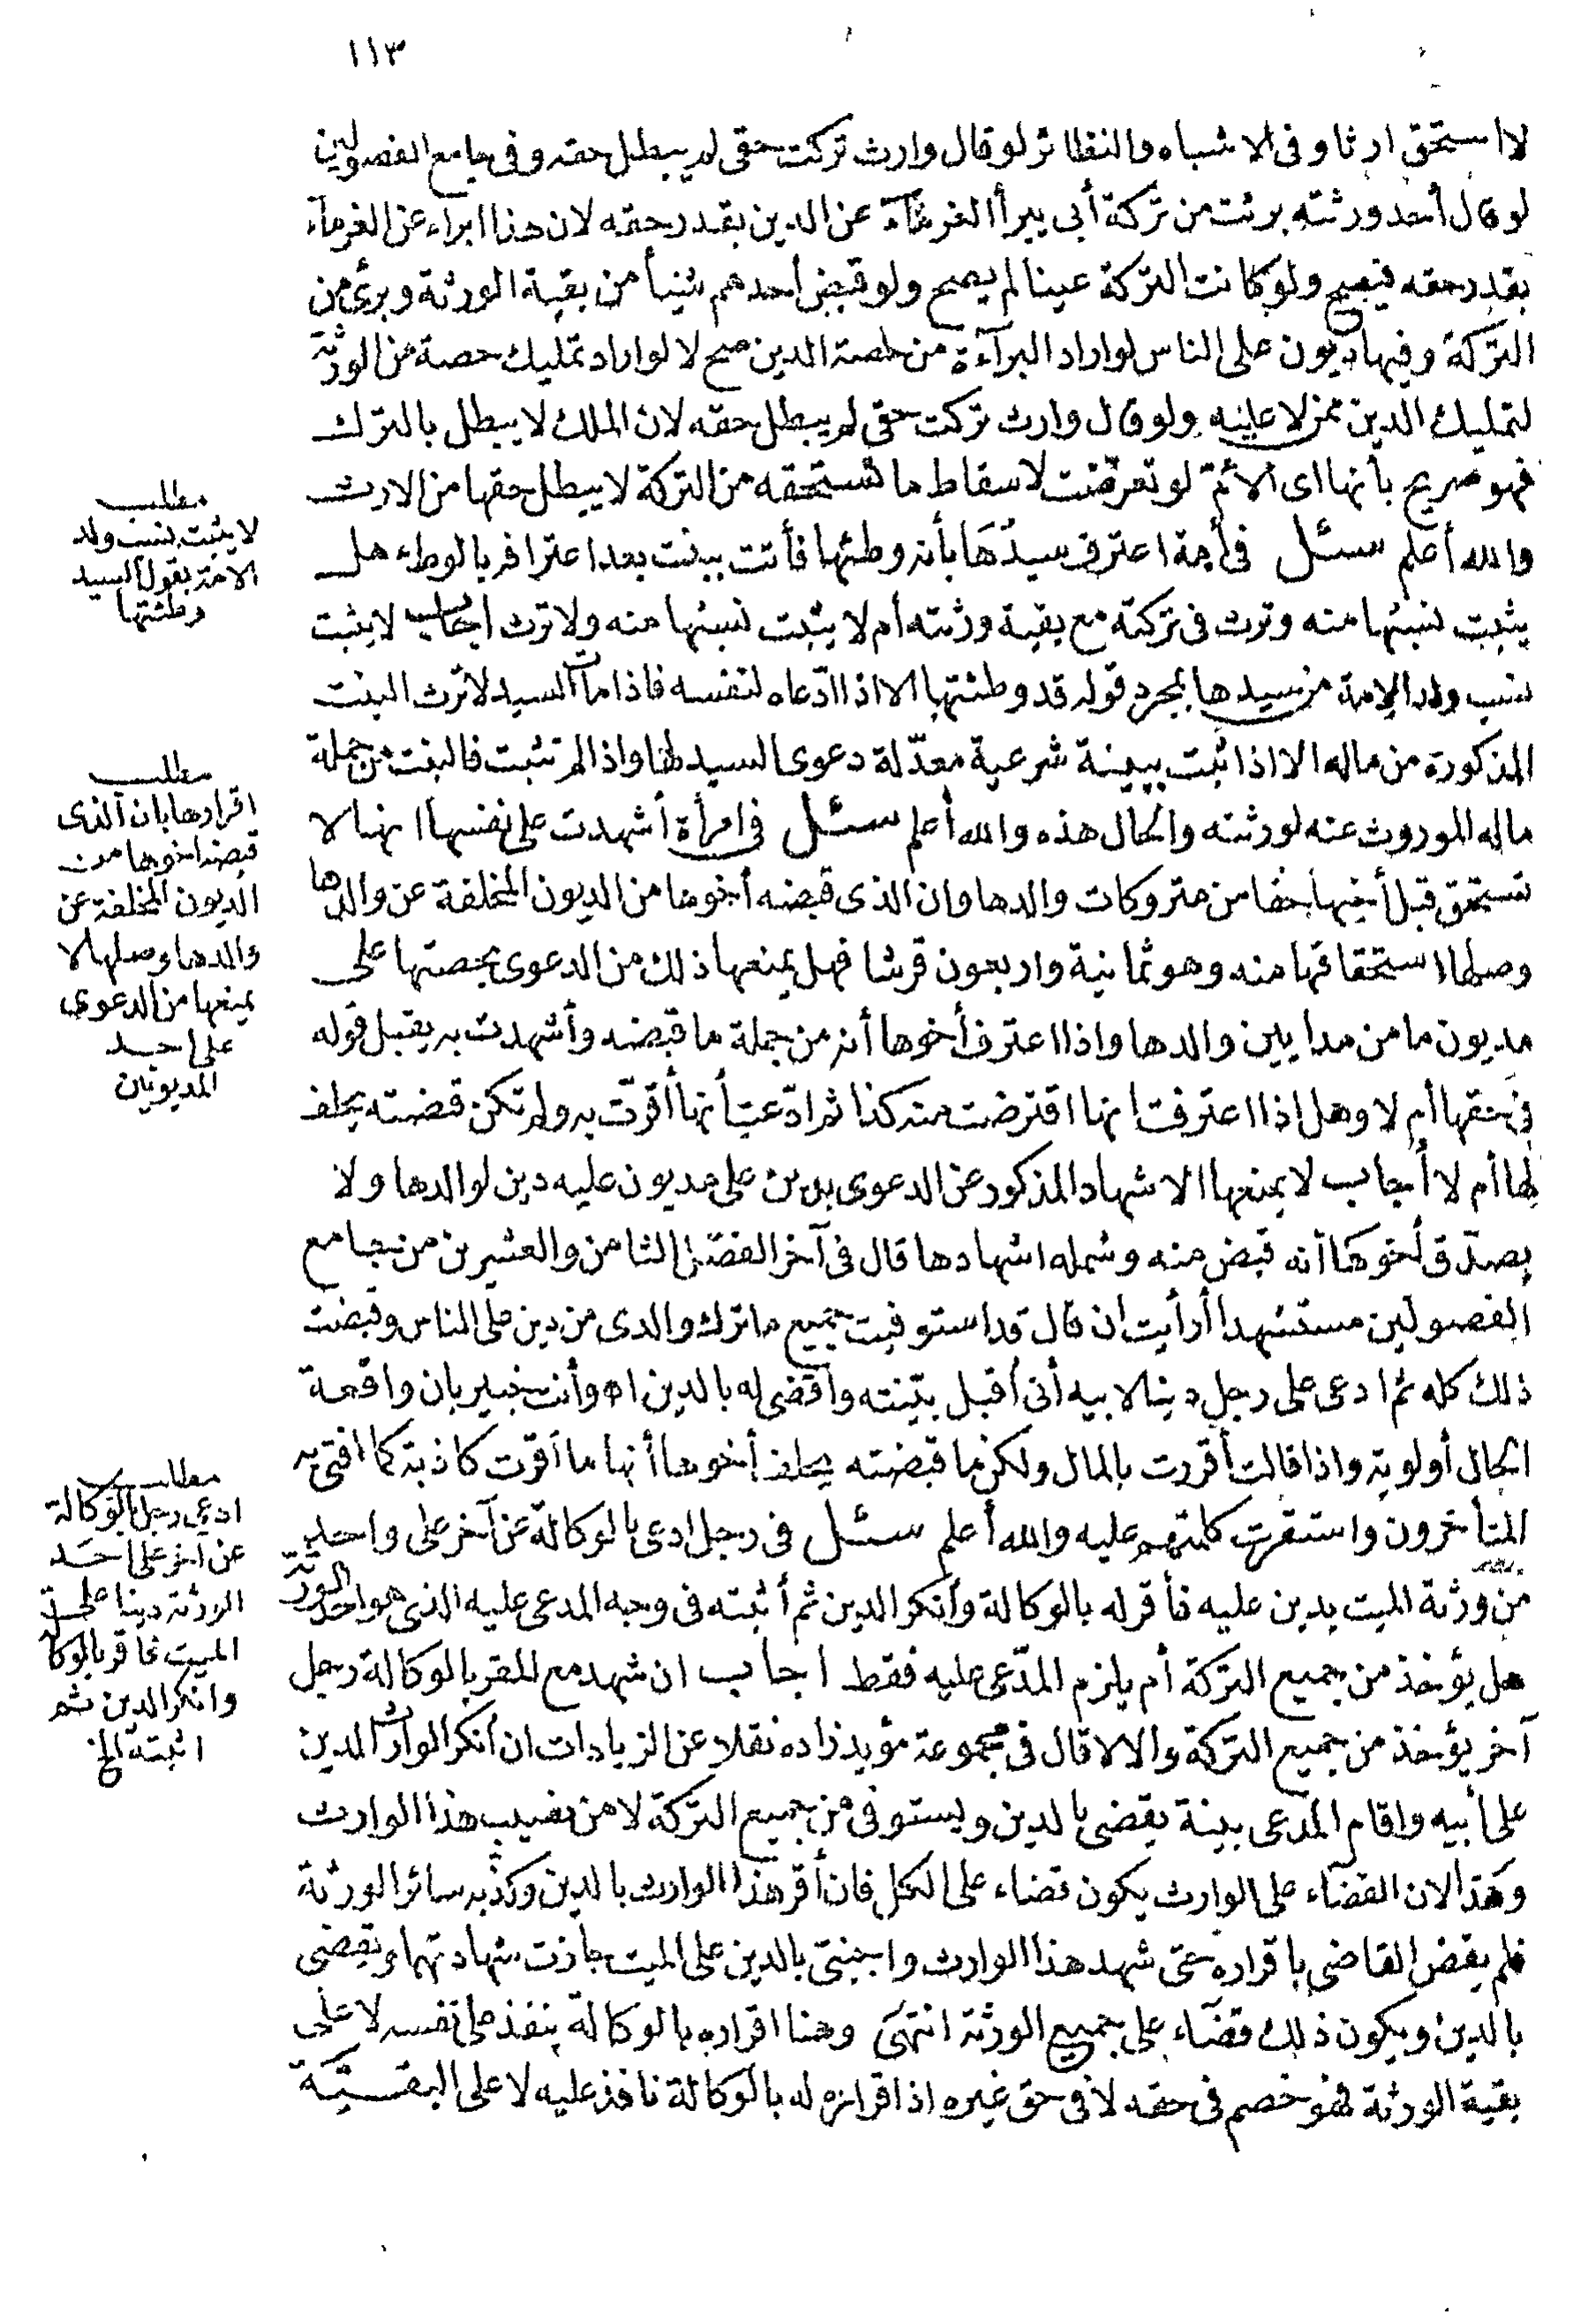 ١١٣
لا استحق ارثا وفى الاشباه والنظائر لو قال وارث تركت حقى لم يبطل حقه وفى جامع الفصولين
لو قال أحد ورثته برئت من تركة أبى يبرأ الغرماء عن الدين بقدر حقه لان هذا ابراء عن الغرماء
بقدر حقه فيصح ولو كانت التركة عينا لم يصح ولو قبض أحدهم شيئا من بقية الورثة وبرئ من
التركة وفيها ديون على الناس لو اراد البراءة من حصة الدين صح لا لو اراد تمليك حصة من الورثة
لتمليك الدين ممن لا عليه ولو قال وارث تركت حقى لم يبطل حقه لان الملك لا يبطل بالترك
فهو صريح بأنها اى الأم لو تعرضت لاسقاط ما تستحقه من التركة لا يبطل حقها من الارث
والله أعلم سئل فى أمة اعترف سيدها بأنه وطئها فأتت ببنت بعد اعترافه بالوطء هل
يثبت نسبها منه وترث فى تركته مع بقية ورثته أم لا يثبت نسبها منه ولا ترث أجاب لا يثبت
نسب ولد الامة من سيدها بمجرد قوله قد وطئتها الا اذا ادّعاه لنفسه فاذا مات السيد لا ترث البنت
المذكورة من ماله الا اذا ثبت ببينة شرعية معدّلة دعوى السيد لها واذا لم تثبت فالبنت من جملة
ماله الموروث عنه لورثته والحال هذه والله أعلم سئل فى امرأة أشهدت على نفسها انها لا
تستحق قبل أخيها حقا من متروكات والدها وان الذى قبضه أخوها من الديون المخلفة عن والدها
وصلها استحقاقها منه وهو ثمانية واربعون قرشا فهل يمنعها ذلك من الدعوى بحصتها على
مديون ما من مدايين والدها واذا اعترف أخوها أنه من جملة ما قبضه وأشهدت به يقبل قوله
فى حقها أم لا وهل اذا اعترفت انها اقترضت منه كذا ثم ادّعت أنها أقرّت به ولم تكن قبضته يحلف
لها أم لا أجاب لا يمنعها الاشهاد المذكور عن الدعوى بدين على مديون عليه دين لوالدها ولا
يصدّق أخوها أنه قبض منه وشمله اشهادها قال فى آخر الفصل الثامن والعشرين من جامع
الفصولين مستشهدا أرأيت ان قال قد استوفيت جميع ما ترك والدى من دين على الناس وقبضت
ذلك كله ثم ادعى على رجل دينا لابيه أنى أقبل بيّنته وأقضى له بالدين اه وأنت خبير بان واقعة
الحال أولوية واذا قالت أقررت بالمال ولكن ما قبضته يحلف أخوها أنها ما أقرت كاذبة كما افتى به
المتأخرون واستقرت كلمتهم عليه والله أعلم سئل فى رجل ادعى بالوكالة عن آخر على واحد
من ورثة الميت بدين عليه فأقر له بالوكالة وأنكر الدين ثم أثبته فى وجه المدعى عليه الذى هو احد الورثة
هل يؤخذ من جميع التركة أم يلزم المدّعى عليه فقط اجاب ان شهد مع المقر بالوكالة رجل
آخر يؤخذ من جميع التركة والا لا قال فى مجموعة مؤيد زاده نقلا عن الزيادات ان أنكر الوارث الدين
على أبيه واقام المدّعى بينة يقضى بالدين ويستوفى من جميع التركة لا من نصيب هذا الوارث
وهذا لان القضاء على الوارث يكون قضاء على الكل فان أقر هذا الوارث بالدين وكذّبه سائر الورثة
فلم يقض القاضى باقراره حتى شهد هذا الوارث واجنبى بالدين على الميت جازت شهادتهما ويقضى
بالدين ويكون ذلك قضاء على جميع الورثة انتهى وهنا اقراره بالوكالة ينفذ على نفسه لا على
بقية الورثة فهو خصم فى حقه لا فى حق غيره اذ اقراره له بالوكالة نافذ عليه لا على البقيّة
مطلب
لا يثبت نسب ولد
الامة بقول السيد
وطئتها
مطلب
اقرارها بان الذى
قبضه اخوها من
الديون المخلفة عن
والدها وصلها لا
يمنعها من الدعوى
على احد
المديونين
مطلب
ادعى رجل بالوكالة
عن آخر على احد
الورثة دينا على
الميت فاقر بالوكا
وانكر الدين ثم
اثبته الخ